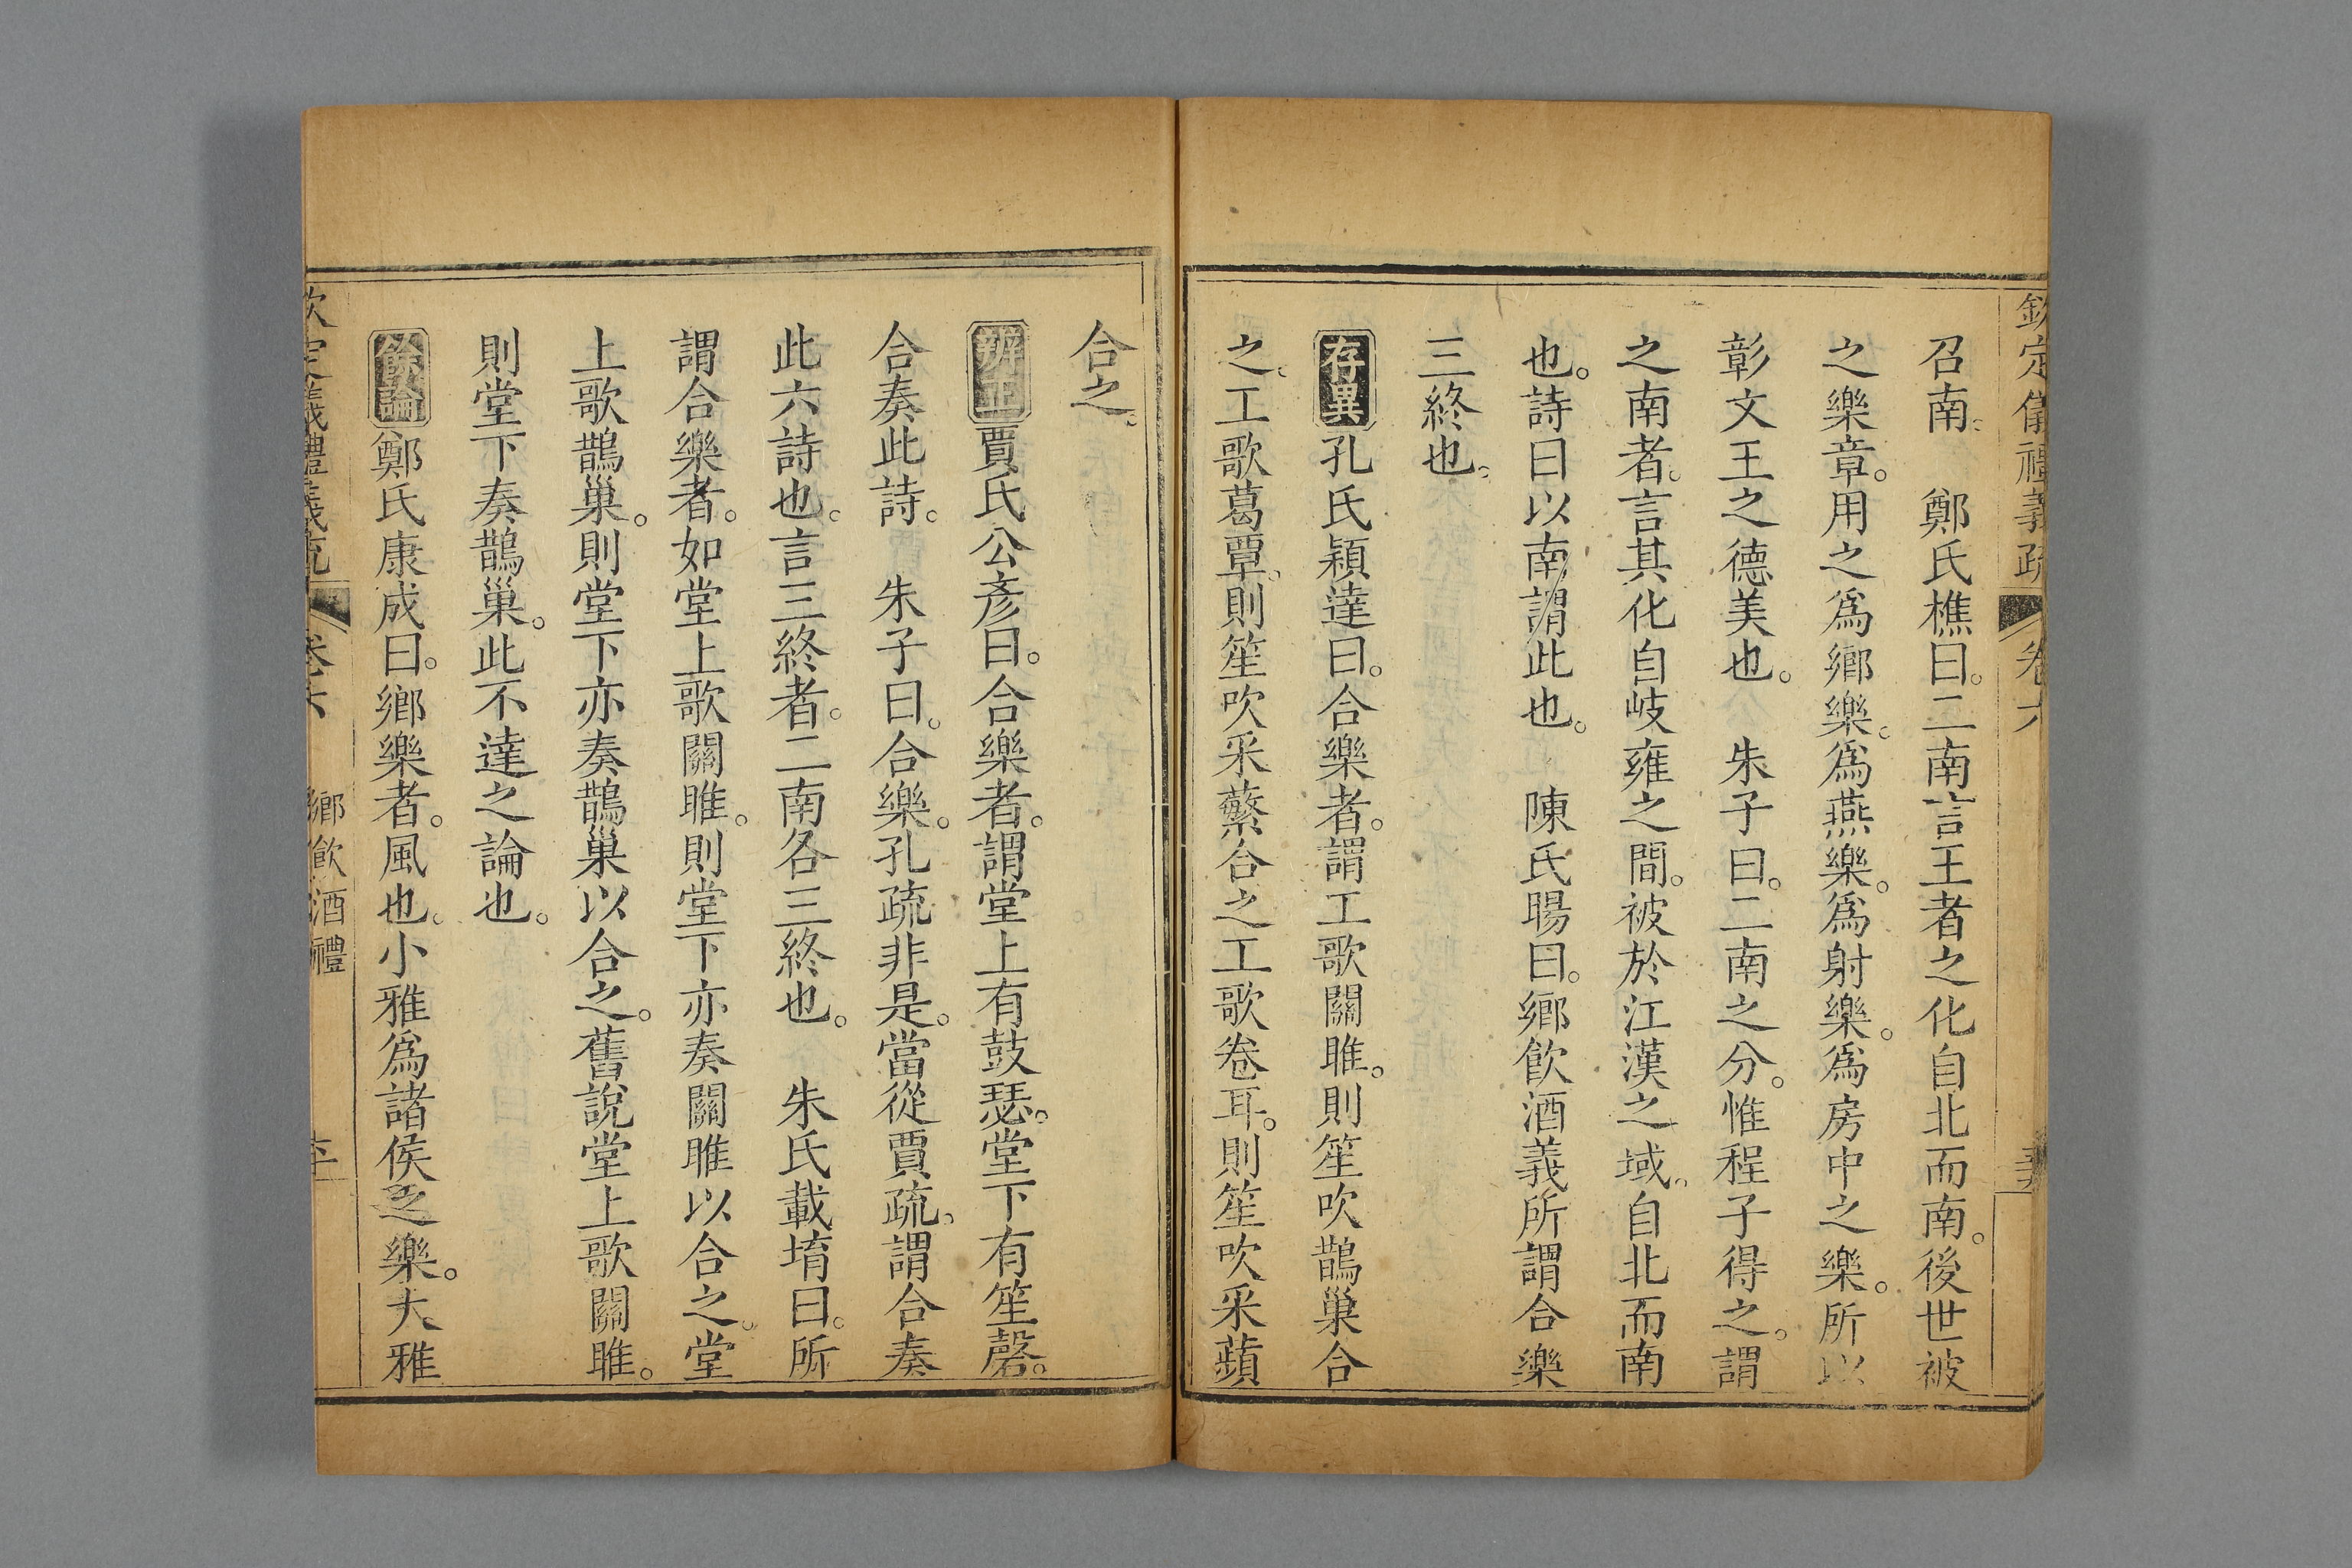 欽定儀禮義疏 卷六
召南。 鄭氏樵曰。二南言王者之化自北而南。後世被
之樂章。用之爲鄉樂。爲燕樂。爲射樂。爲房中之樂。所以
彰文王之德美也。 朱子曰。二南之分。惟程子得之。謂
之南者。言其化自岐雍之間。被於江漢之域。自北而南
也。詩曰以南謂此也。 陳氏暘曰。鄉飲酒義所謂合樂
三終也。
存異孔氏穎達曰。合樂者。謂工歌關雎。則笙吹鵲巢合
之。工歌葛覃。則笙吹采蘩合之工歌卷耳。則笙吹采蘋
合之。
辨正賈氏公彥曰。合樂者。謂堂上有鼓瑟。堂下有笙磬。
合奏此詩。 朱子曰。合樂。孔疏非是。當從賈疏。謂合奏
此六詩也。言三終者。二南各三終也。 朱氏載堉曰。所
謂合樂者。如堂上歌關雎。則堂下亦奏關雎以合之。堂
上歌鵲巢。則堂下亦奏鵲巢以合之。舊說堂上歌關雎。
則堂下奏鵲巢。此不達之論也。
餘論鄭氏康成曰。鄉樂者。風也。小雅爲諸侯之樂。大雅
欽定儀禮義疏 卷六 鄉飲酒禮